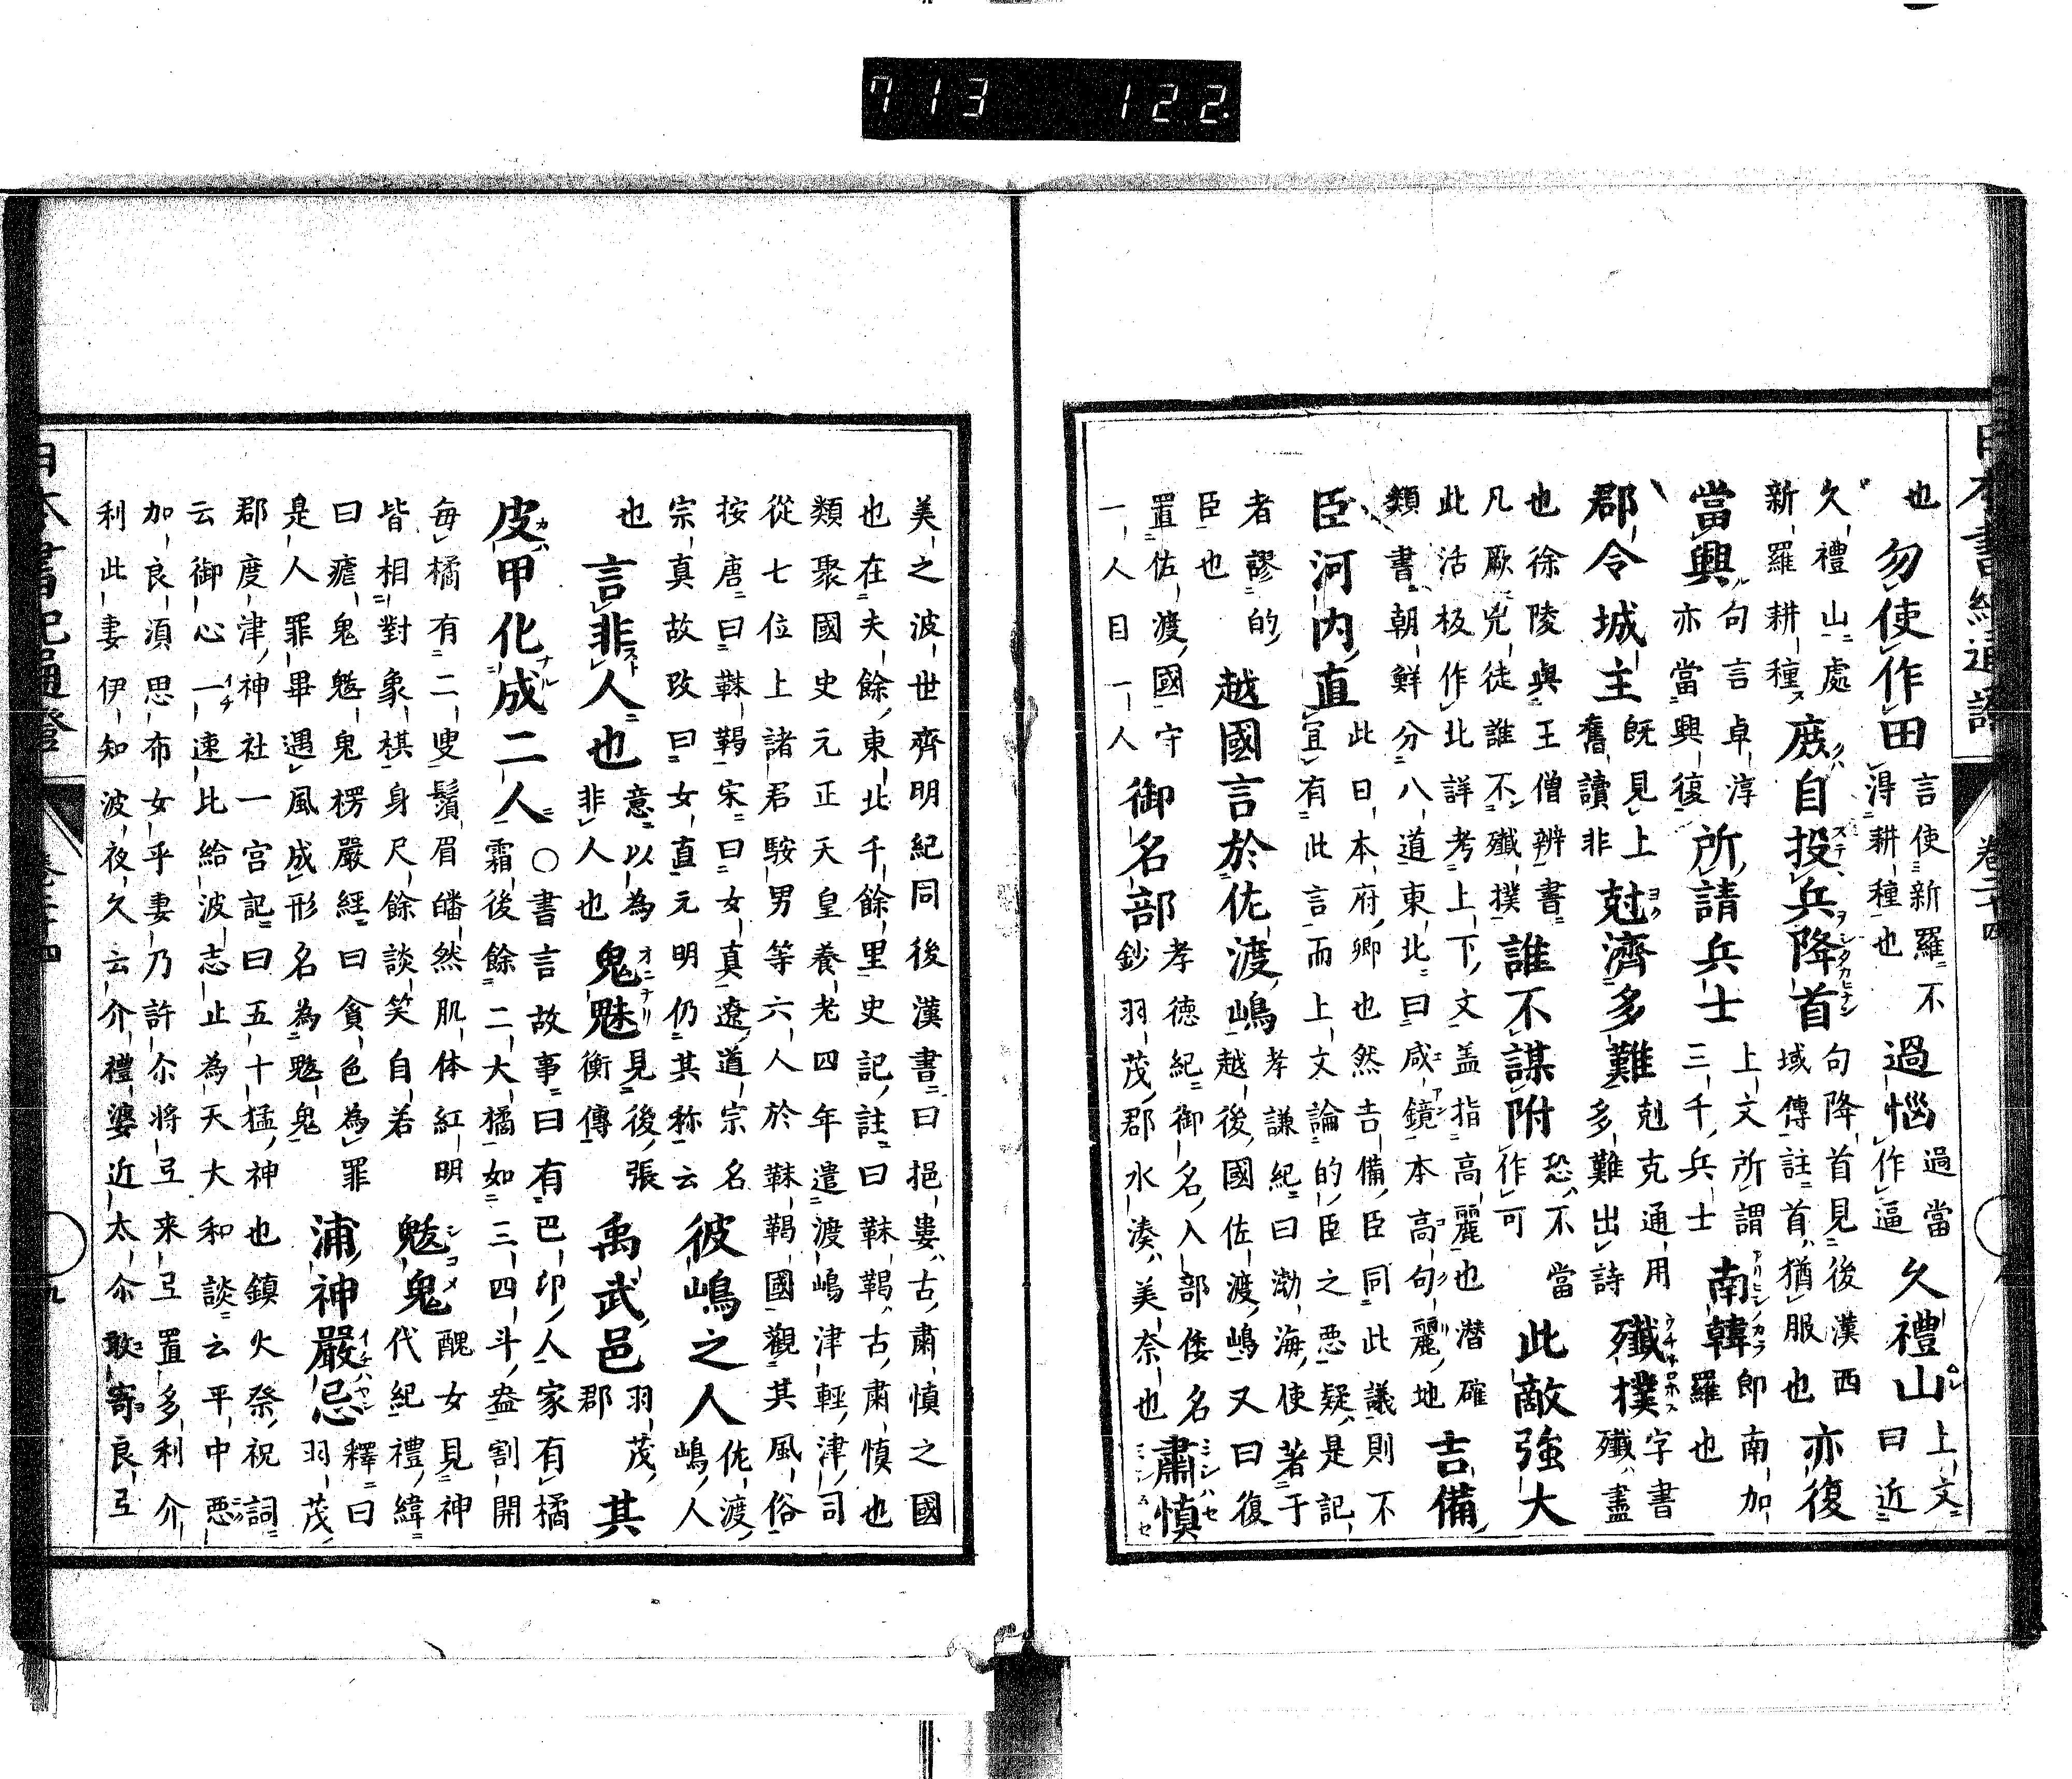 日本書紀通證 卷二十四
也 勿使作田 言使新羅不
淂耕種也 過惱 過當
作逼 久禮山 上文
曰近
久禮山處
新羅耕種 庶自投兵降首 句降首見後漢西
域傳註首猶服也 亦復
當興 句言卓淳
亦當興復 所請兵士 上文所謂
三千兵士 南韓 即南加
羅也
郡令城主 既見上
舊讀非 尅濟多難 剋克通用
多難出詩 殲撲 字書
殲盡
也徐陵與王僧辨書
凡厥兇徒誰不殲撲 誰不謀附 恐不當
作可 此敵強大
此活板作北詳考上下文盖指高麗也潜確
類書朝鮮分八道東北曰咸鏡本高句麗地 吉備
臣河内直 此日本府卿也然吉備臣同此議則不
宜有此言而上文論的臣之悪疑是記
者謬的
臣也 越國言於佐渡嶋 孝謙紀曰渤海使著于
越後國佐渡嶋又曰復
置佐渡國守
一人目一人 御名部 孝徳紀御名入部倭名
鈔羽茂郡水湊美奈也 肅慎
美之波世齊明紀同後漢書曰挹婁古肅慎之國
也在夫餘東北千餘里史記註曰靺鞨古肅慎也
類聚國史元正天皇養老四年遣渡嶋津輕津司
從七位上諸君鞍男等六人於靺鞨國觀其風俗
按唐曰靺鞨宋曰女真遼道宗名
宗真故改曰女直元明仍其称云 彼嶋之人 佐渡
嶋人
也 言非人也 意以為
非人也 鬼魅 見後張
衡傳 禹武邑 羽茂
郡 其
皮甲化成二人 ○書言故事曰有巴卭人家有橘
霜後餘二大橘如三四斗盎割開
每橘有二叟鬚眉皤然肌体紅明
皆相對象棋身尺餘談笑自若 魃鬼 醜女見神
代紀禮緯
曰瘧鬼魃鬼楞嚴經曰貪色為罪
是人罪畢遇風成形名為魃鬼 浦神嚴忌 釋曰
羽茂
郡度津神社一宮記曰五十猛神也鎮火祭祝詞
云御心一速比給波志止為天大和談云平中悪
加良湏思布女乎妻乃許尓将弖来弖置多利介
利此妻伊知波夜久云介禮婆近太尓敢寄良弖
日本書紀通證 九
713 122.